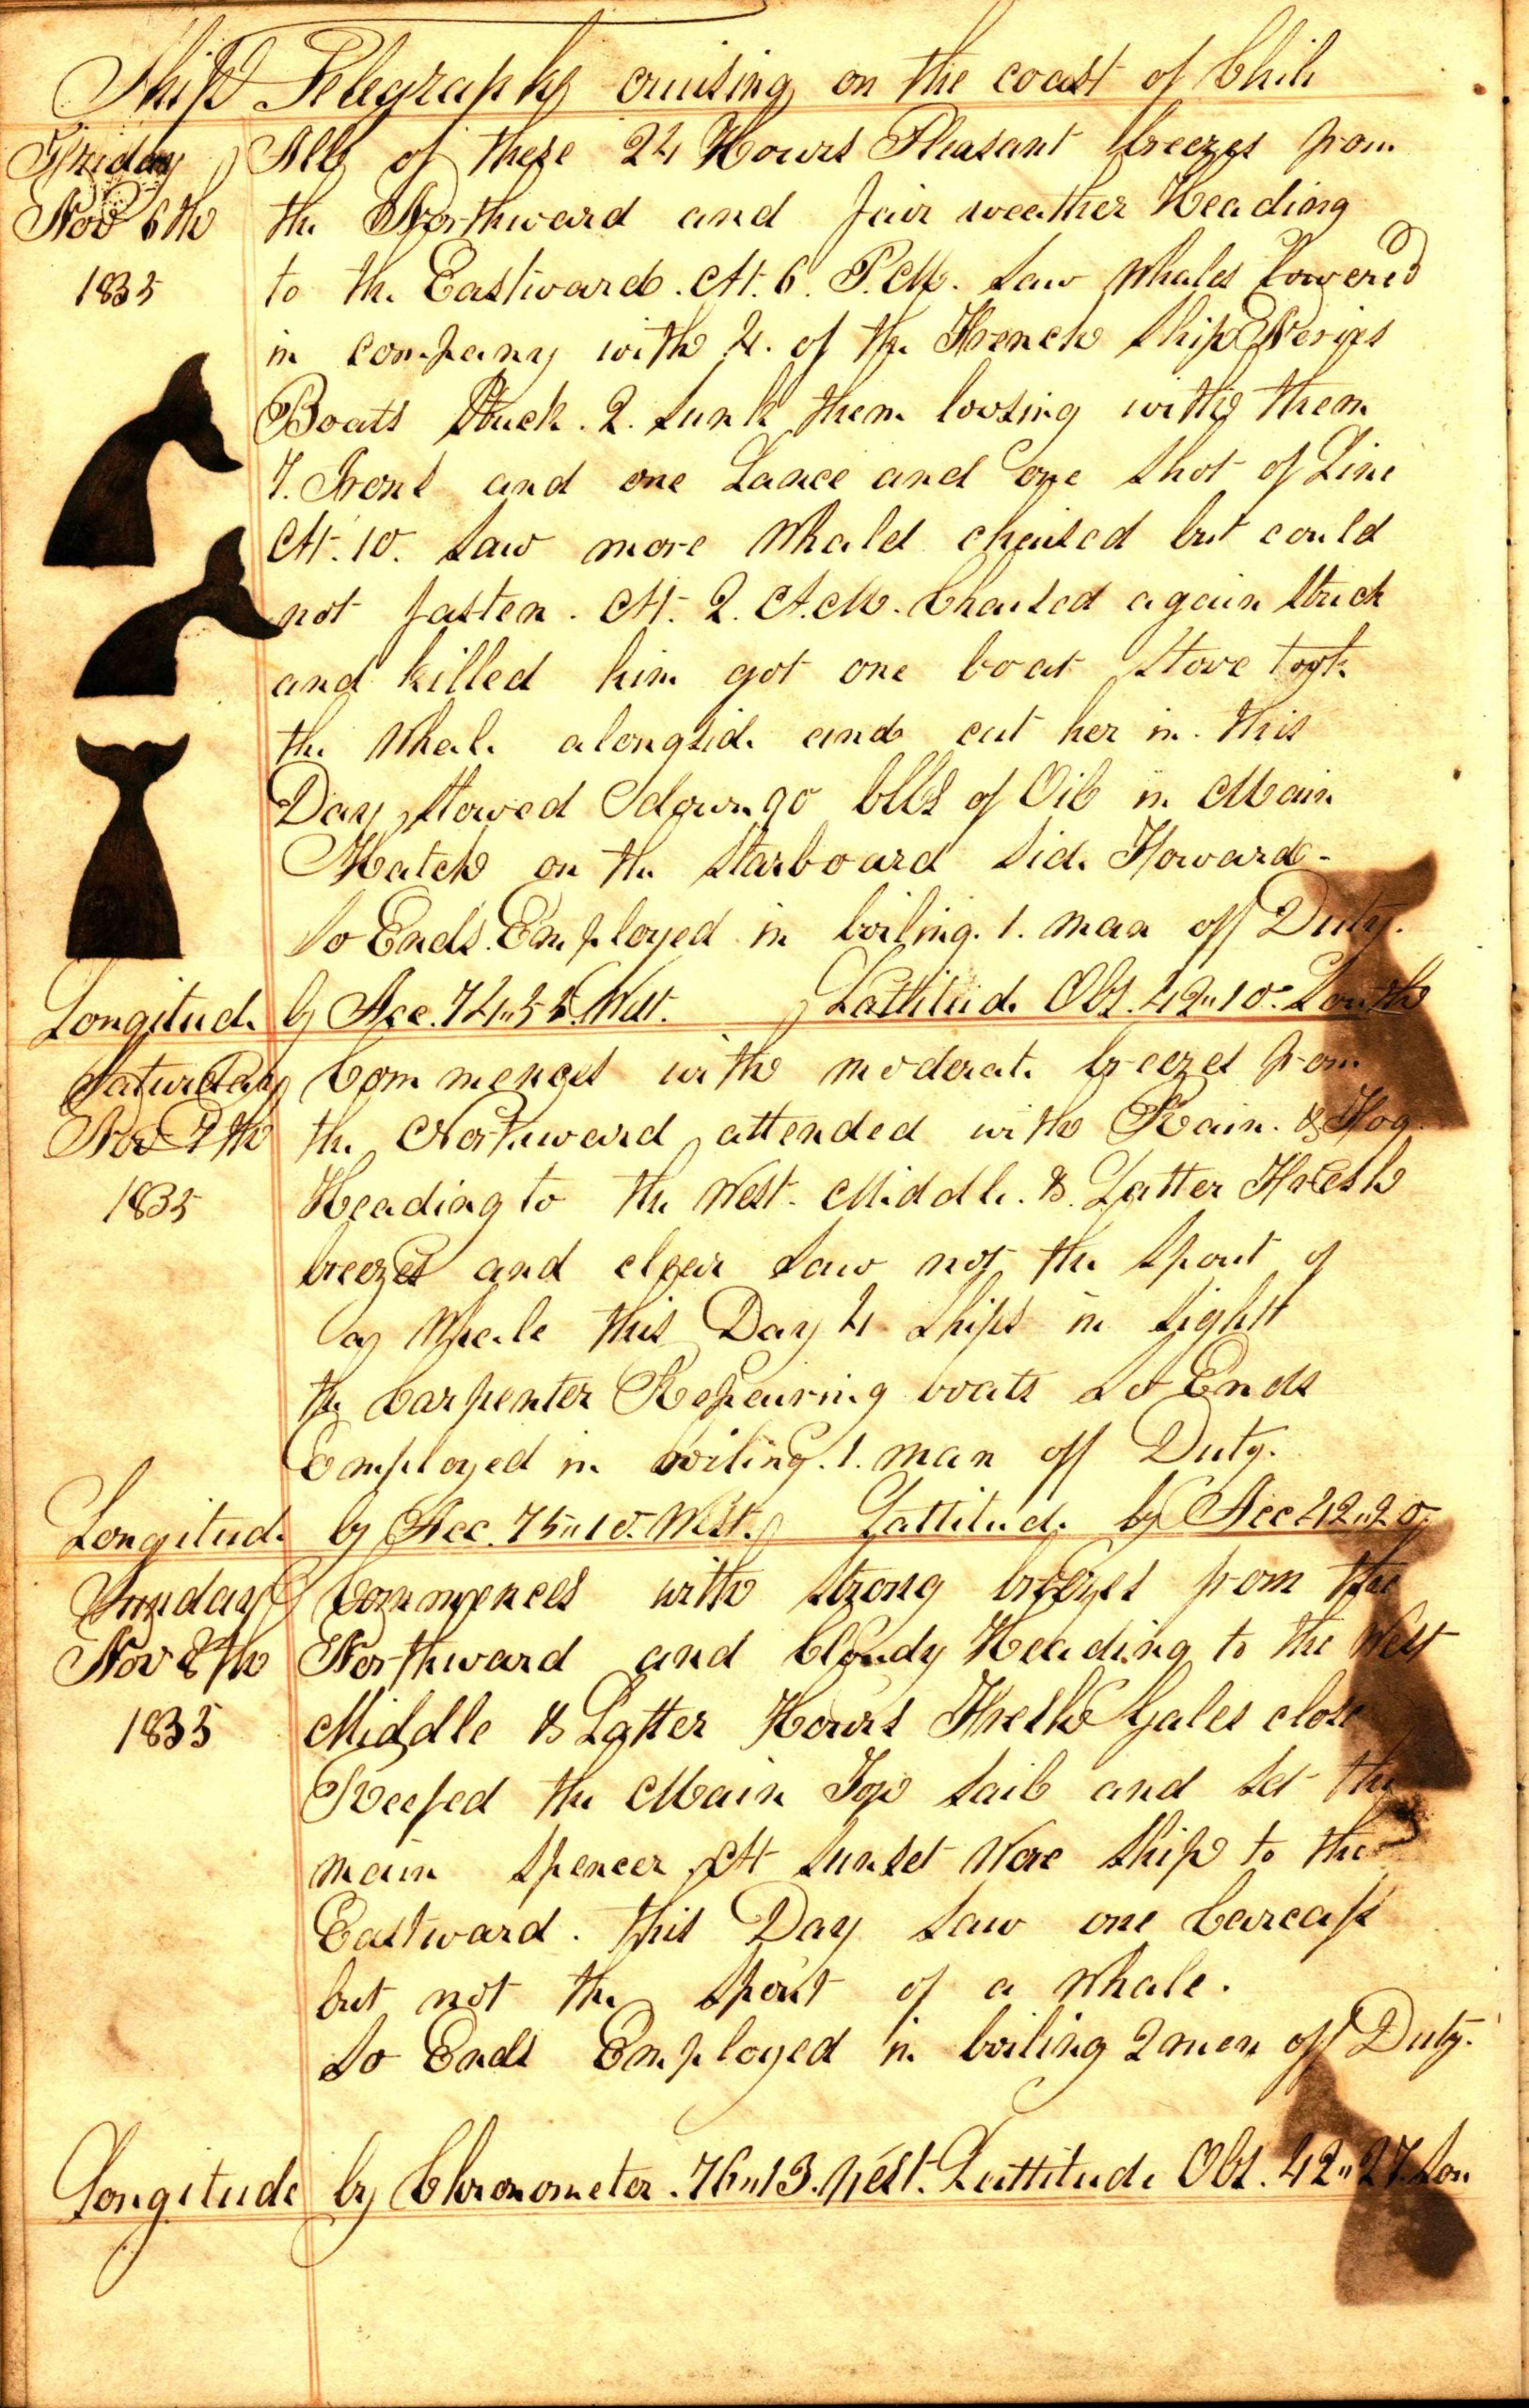 Ship Telegraph cruising on the coast of Chili
Friday All of these 24 Hours Pleasant breezes from
Nov 6th the Northward and fair weather Heading
1835 to the Eastward. At. 6. P.M. saw Whales lowered
in company with 4. of the French Ship
Boats Stuck. 2. sunk them loosing with them
7. Irons and one Lance and one shot of Line
At. 10. saw more Whales chaised but could
not fasten. At. 2. A.M. Chaised again Struck
and killed him got one boat Stove took
the Whale alongside and cut her in. this
Day Stowed down 90 bbls of Oil in Main
Hatch on the Starboard side Foward-
So Ends. Employed in boiling. 1. man off Duty.
Longitude by Acc. 74,, West. Lattitude Obs. 42,,10 South
Saturday Commences with moderate breezes from
Nov 7th the Northward attended with Rain. & Fog
1835 Heading to the West. Middle. & Latter Fresh
breezes and clear saw not the spout of
a Whale this Day 4 ships in sight
the Carpenter Repairing boats So Ends
Employed in boiling. 1. man off Duty.
Longitude by Acc. 75,,10. West. Lattitude by Acc 42,,20
Sunday Commences with strong breezes from the
Nov 8th Northward and Cloudy Heading to the West
1835 Middle & Latter Hours Fresh Gales close
Reefed the Main Top sail and set the
main spencer At sunset Wore Ship to the
Eastward. this Day saw one Carcass
but not the spout of a Whale.
So Ends Employed in boiling 2 men off Duty.
Longitude by Chronometer. 76,,13. West. Lattitude Obs. 42,,27. Sou